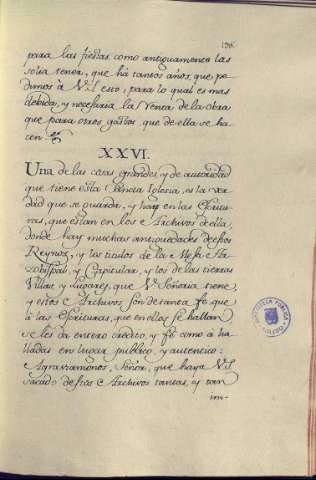 para las fiestas como antiguamente las
solia tener, que há tantos años, que pe-
dimos à V.S. esto, para lo qual es mas
debida, y necesaria la Renta de la obra
que para otros gastos que de ella se ha
cen.
XXVI.
Una de las cosas grandes, y de autoridad
que tiene esta Santa Iglesia, es la ver-
dad que se guarda, y hay en las Escritu-
ras, que estan en los Archivos de ella,
donde hay muchas antiguedades destos
Reynos, y los titulos de la Mesa Ar-
zobispal, y Capitular, y los de las tierras
Villas, y Lugares, que Vª Señoria tiene,
y estos Archivos son de tanca fe que
à las Escrituras, que en ellos se hallan
se les da entero credito, y fe como à ha-
lladas en lugar publico, y autentico:
Agraviamonos, Señor, que haya V.S.
sacado destos Archivos tantas, y tan